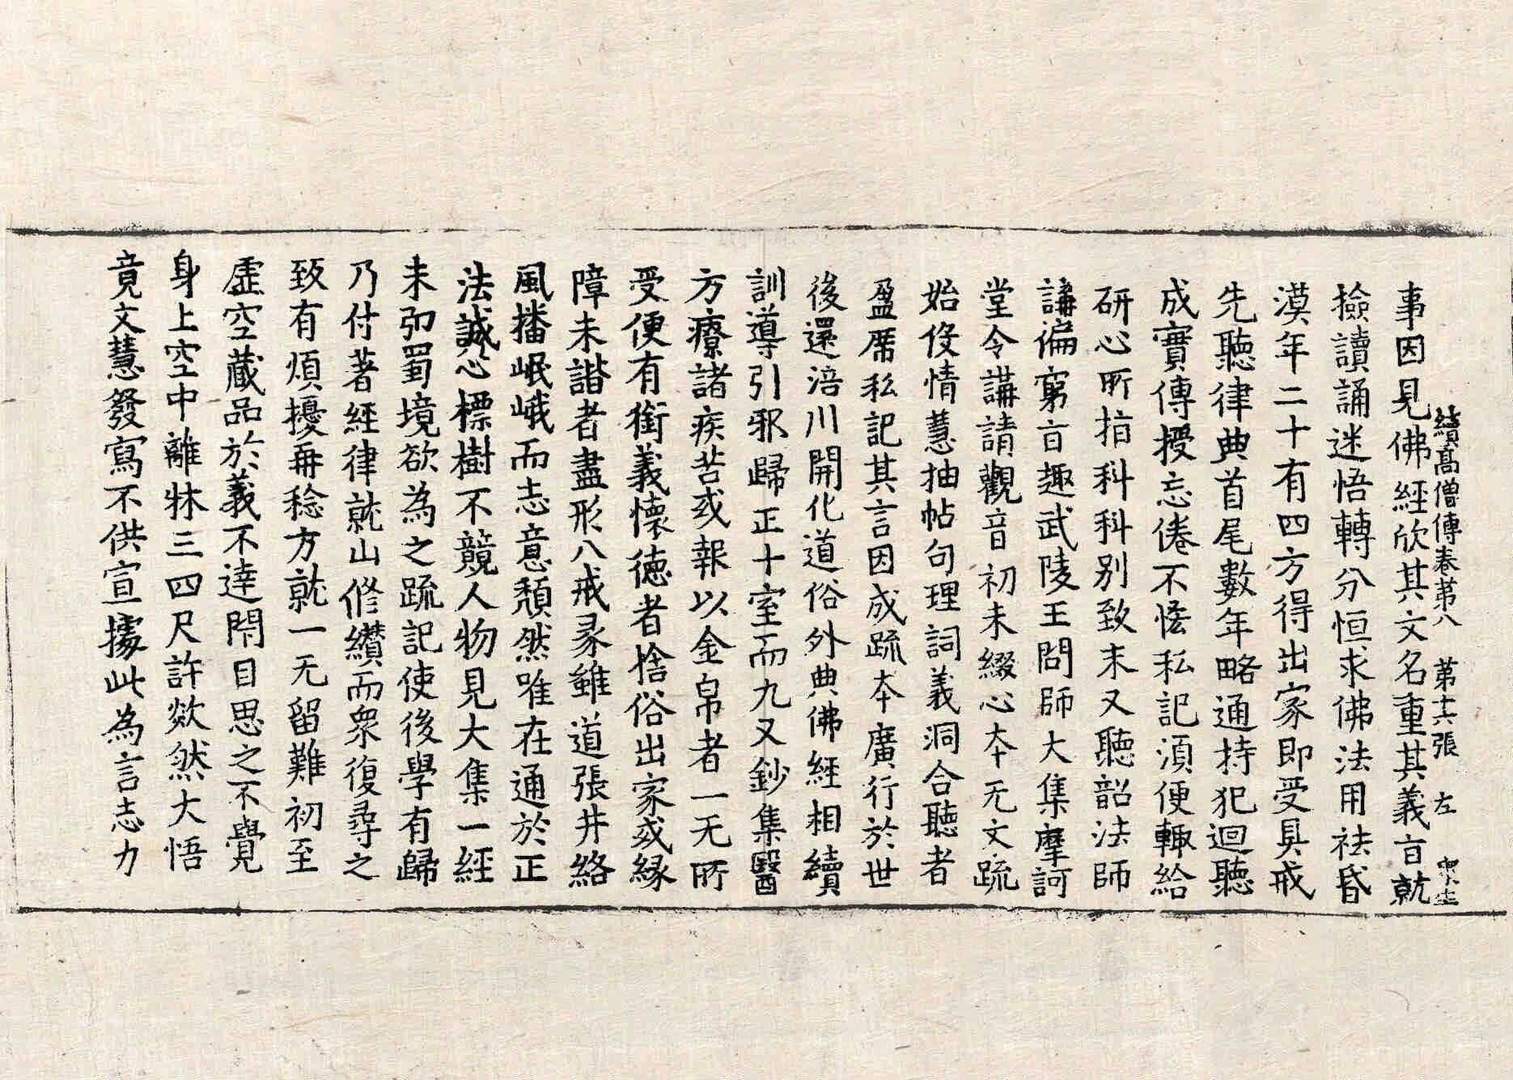 續高僧傳卷第八　第十六張　左
事因見佛經欣其文名重其義旨就
撿讀誦迷悟轉分恒求佛法用袪昏
漠年二十有四方得出家即受具戒
先聽律典首尾數年略通持犯迴聽
成實傳授忘倦不恡私記湏便輙給
研心所指科科別致末又聽韶法師
講徧窮旨趣武陵王問師大集摩訶
堂令講請觀音初未綴心夲无文疏
始役情慧抽帖句理詞義洞合聽者
盈席私記其言因成疏夲廣行於世
後還涪川開化道俗外典佛經相續
訓導引邪歸正十室而九又鈔集醫
方療諸疾苦或報以金帛者一无所
受便有銜義懷德者捨俗出家或緣
障未諧者盡形八戒冡雖道張井絡
風播岷峨而志意頹然唯在通於正
法誠心標樹不競人物見大集一經
未弘蜀境欲為之疏記使後學有歸
乃付著經律就山修纘而衆復尋之
致有煩擾再稔方就一无留難初至
虛空藏品於義不達閇目思之不覺
身上空中離牀三四尺許欻然大悟
竟文慧發寫不供宣據此為言志力